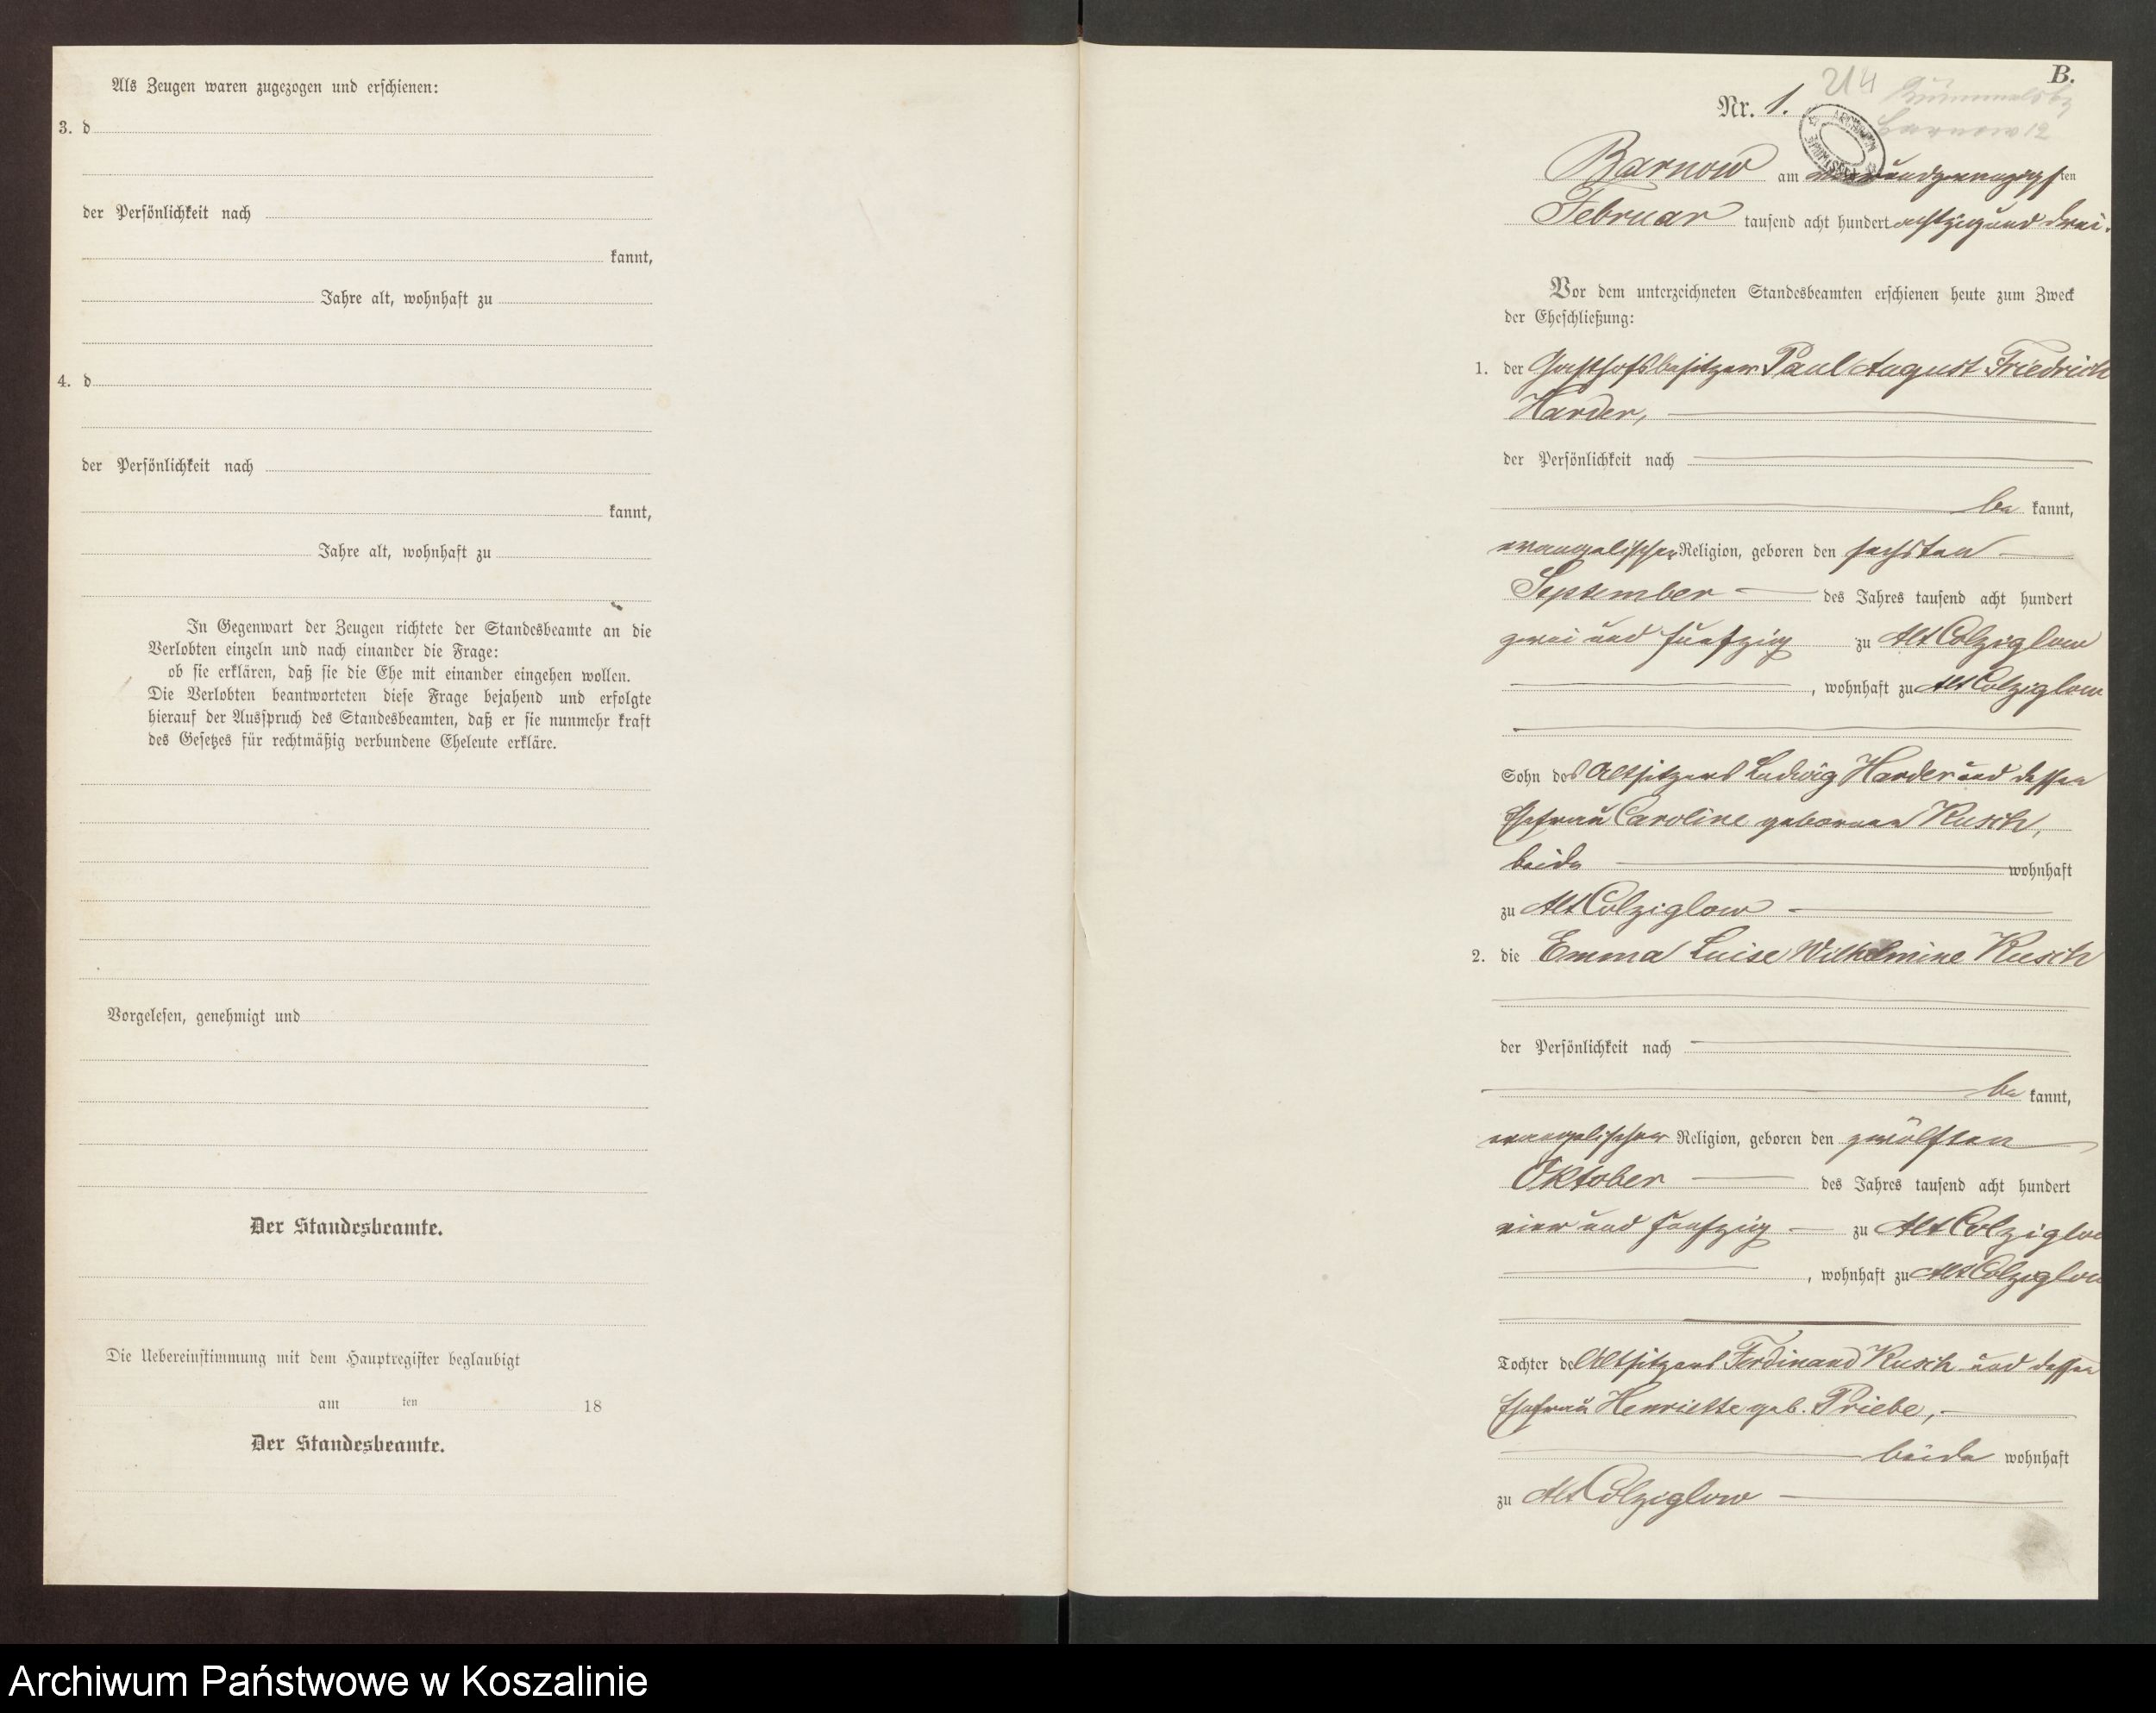 Als Zeugen waren zugezogen und erschienen:
3. d
der Persönlichkeit nach
kannt,
Jahre alt, wohnhaft zu
4. d
der Persönlichkeit nach
kannt,
Jahre alt, wohnhaft zu
In Gegenwart der Zeugen richtete der Standesbeamte an die
Verlobten einzeln und nach einander die Frage:
ob sie erklären, daß sie die Ehe mit einander eingehen wollen.
Die Verlobten beantworteten diese Frage bejahend und erfolgte
hierauf der Ausspruch des Standesbeamten, daß er sie nunmehr kraft
des Gesetzes für rechtmäßig verbundene Eheleute erkläre.
Vorgelesen, genehmigt und
Der Standesbeamte.
Die Uebereinstimmung mit dem Hauptregister beglaubigt
am ten 18
Der Standesbeamte.
B.
Nr. 1.
Barnow am ten
Februar tausend acht hundert achtzig und drei.
Vor dem unterzeichneten Standesbeamten erschienen heute zum Zweck
der Eheschließung:
1. der Gasthofsbesitzer Paul August Friedrich
Harder,
der Persönlichkeit nach
be kannt,
evangelischer Religion, geboren den sechsten
September des Jahres tausend acht hundert
zwei und fünfzig zu Alt Colziglow
, wohnhaft zu Alt Colziglow
Sohn des Altsitzers Ludwig Harder und dessen
Ehefrau Caroline geborenen Kusch,
beide wohnhaft
zu Alt Colziglow
2. die Emma Luise Wilhelmine Kusch
der Persönlichkeit nach
be kannt,
evangelischer Religion, geboren den zwölften
Oktober des Jahres tausend acht hundert
vier und fünfzig zu Alt Colziglow
, wohnhaft zu Alt Colziglow
Tochter des Altsitzers Ferdinand Kusch und dessen
Ehefrau Henriette geb. Priebe,
beide wohnhaft
zu Alt Colziglow
Archiwum Państwowe w Koszalinie